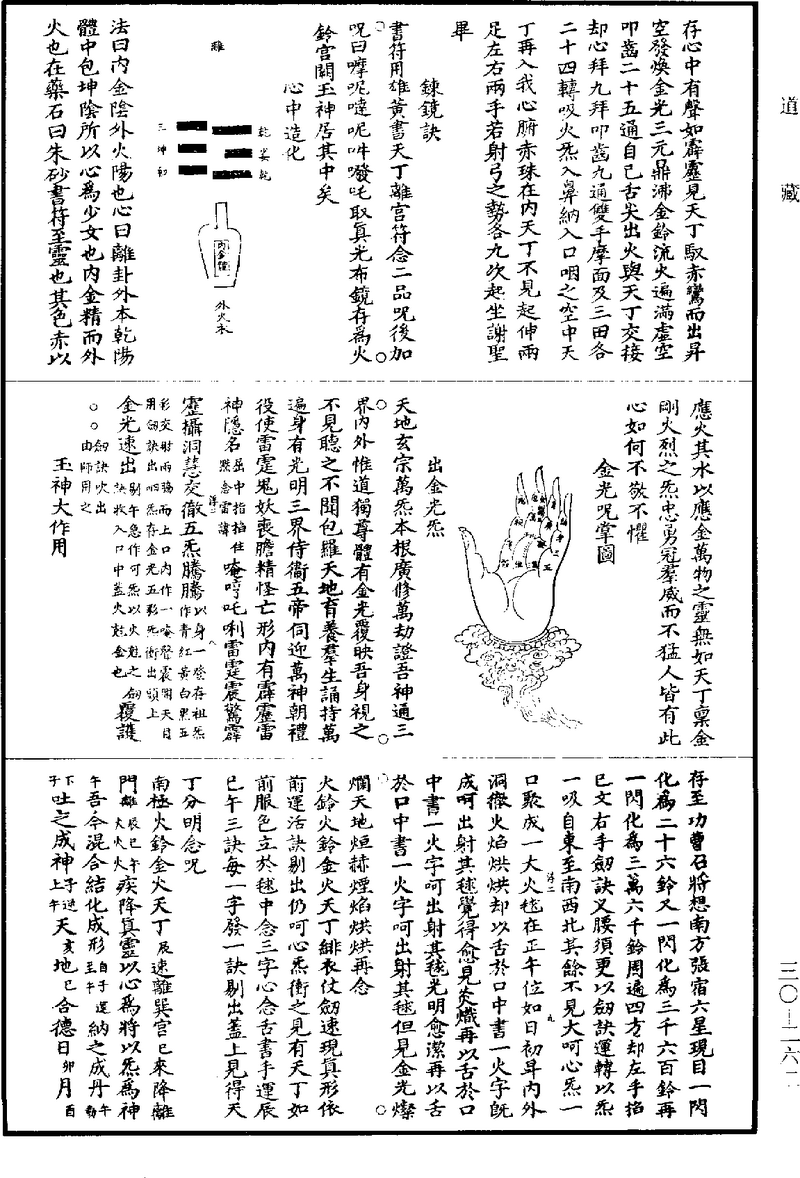 道藏
三〇—二六二
存心中有聲如霹靂見天丁馭赤鸞而出昇
空發煥金光三元鼎沸金鈴流火遍滿虛空
叩齒二十五通自己舌尖出火與天丁交接
却心拜九拜叩齒九通雙手摩面及三田各
二十四轉吸火炁入鼻納入口咽之空中天
丁再入我心腑赤珠在內天丁不見起伸兩
足左右兩手若射弓之勢各九次起坐謝聖
畢
鍊鏡訣
書符用雄黃書天丁離宮符念二品呪後加
呪曰嚤呢噠呢吽㗶吒取真光布鏡存為火
鈴宮闕玉神居其中矣
心中造化
離
乾 炁 乾
三 坤 初
外火禾
法曰內金陰外火陽也心曰離卦外本乾陽
體中包坤陰所以心為少女也內金精而外
火也在藥石曰朱砂書符至靈也其色赤以
應火其水以應金萬物之靈無如天丁稟金
剛火烈之炁忠勇冠羣威而不猛人皆有此
心如何不敬不懼
金光呪掌圖
出金光炁
天地玄宗萬炁本根廣修萬劫證吾神通三
界內外惟道獨尊體有金光覆映吾身視之
不見聽之不聞包羅天地育養羣生誦持萬
遍身有光明三界侍衛五帝伺迎萬神朝禮
役使雷霆鬼妖喪膽精怪亡形內有霹靂雷
神隱名屈中指掐住默念雷諱唵哼吒唎雷霆震驚霹
靂攝洞慧交徹五炁騰騰以身一瑩存祖炁作青紅黃白黑五
彩交射兩腸而上口內作一唵聲震開天目用劒訣出咽炁存金光五彩死衝出頭上
金光速出剔午急作可炁以火魁之訣收入口中蓋火尅金也劒覆護
○○劒訣吹出由師用之
玉神大作用
存至功曹召將想南方張宿六星現目一閃
化為二十六鈴又一閃化為三千六百鈴再
一閃化為三萬六千鈴周遍四方却左手掐
巳文右手劒訣叉腰須更以劒訣運轉以炁
一吸自東至南西北其餘不見大呵心炁一
口聚成一大火毬在正午位如日初早內外
洞徹火焰烘烘却以舌於口中書一火字旣
成呵出射其毬覺得愈見炎熾再以舌於口
中書一火字呵出射其毬光明愈潔再以舌
於口中書一火字呵出射其毬但見金光燦
爛天地烜赫煙焰烘烘再念
火鈴火鈴金火天丁緋衣仗劒速現真形依
前運活訣剔出仍呵心炁衝之見有天丁如
前服色立於毬中念三字心念舌書手運辰
巳午三訣每一字發一訣剔出蓋上見得天
丁分明念呪
南極火鈴金火天丁辰速離巽宮巳來降離
門離辰巳午大火火疾降真靈以心為將以炁為神
午吾今混合結化成形自子運至午納之成丹午
下子吐之成神子逆上午天亥地巳合德日卯月酉